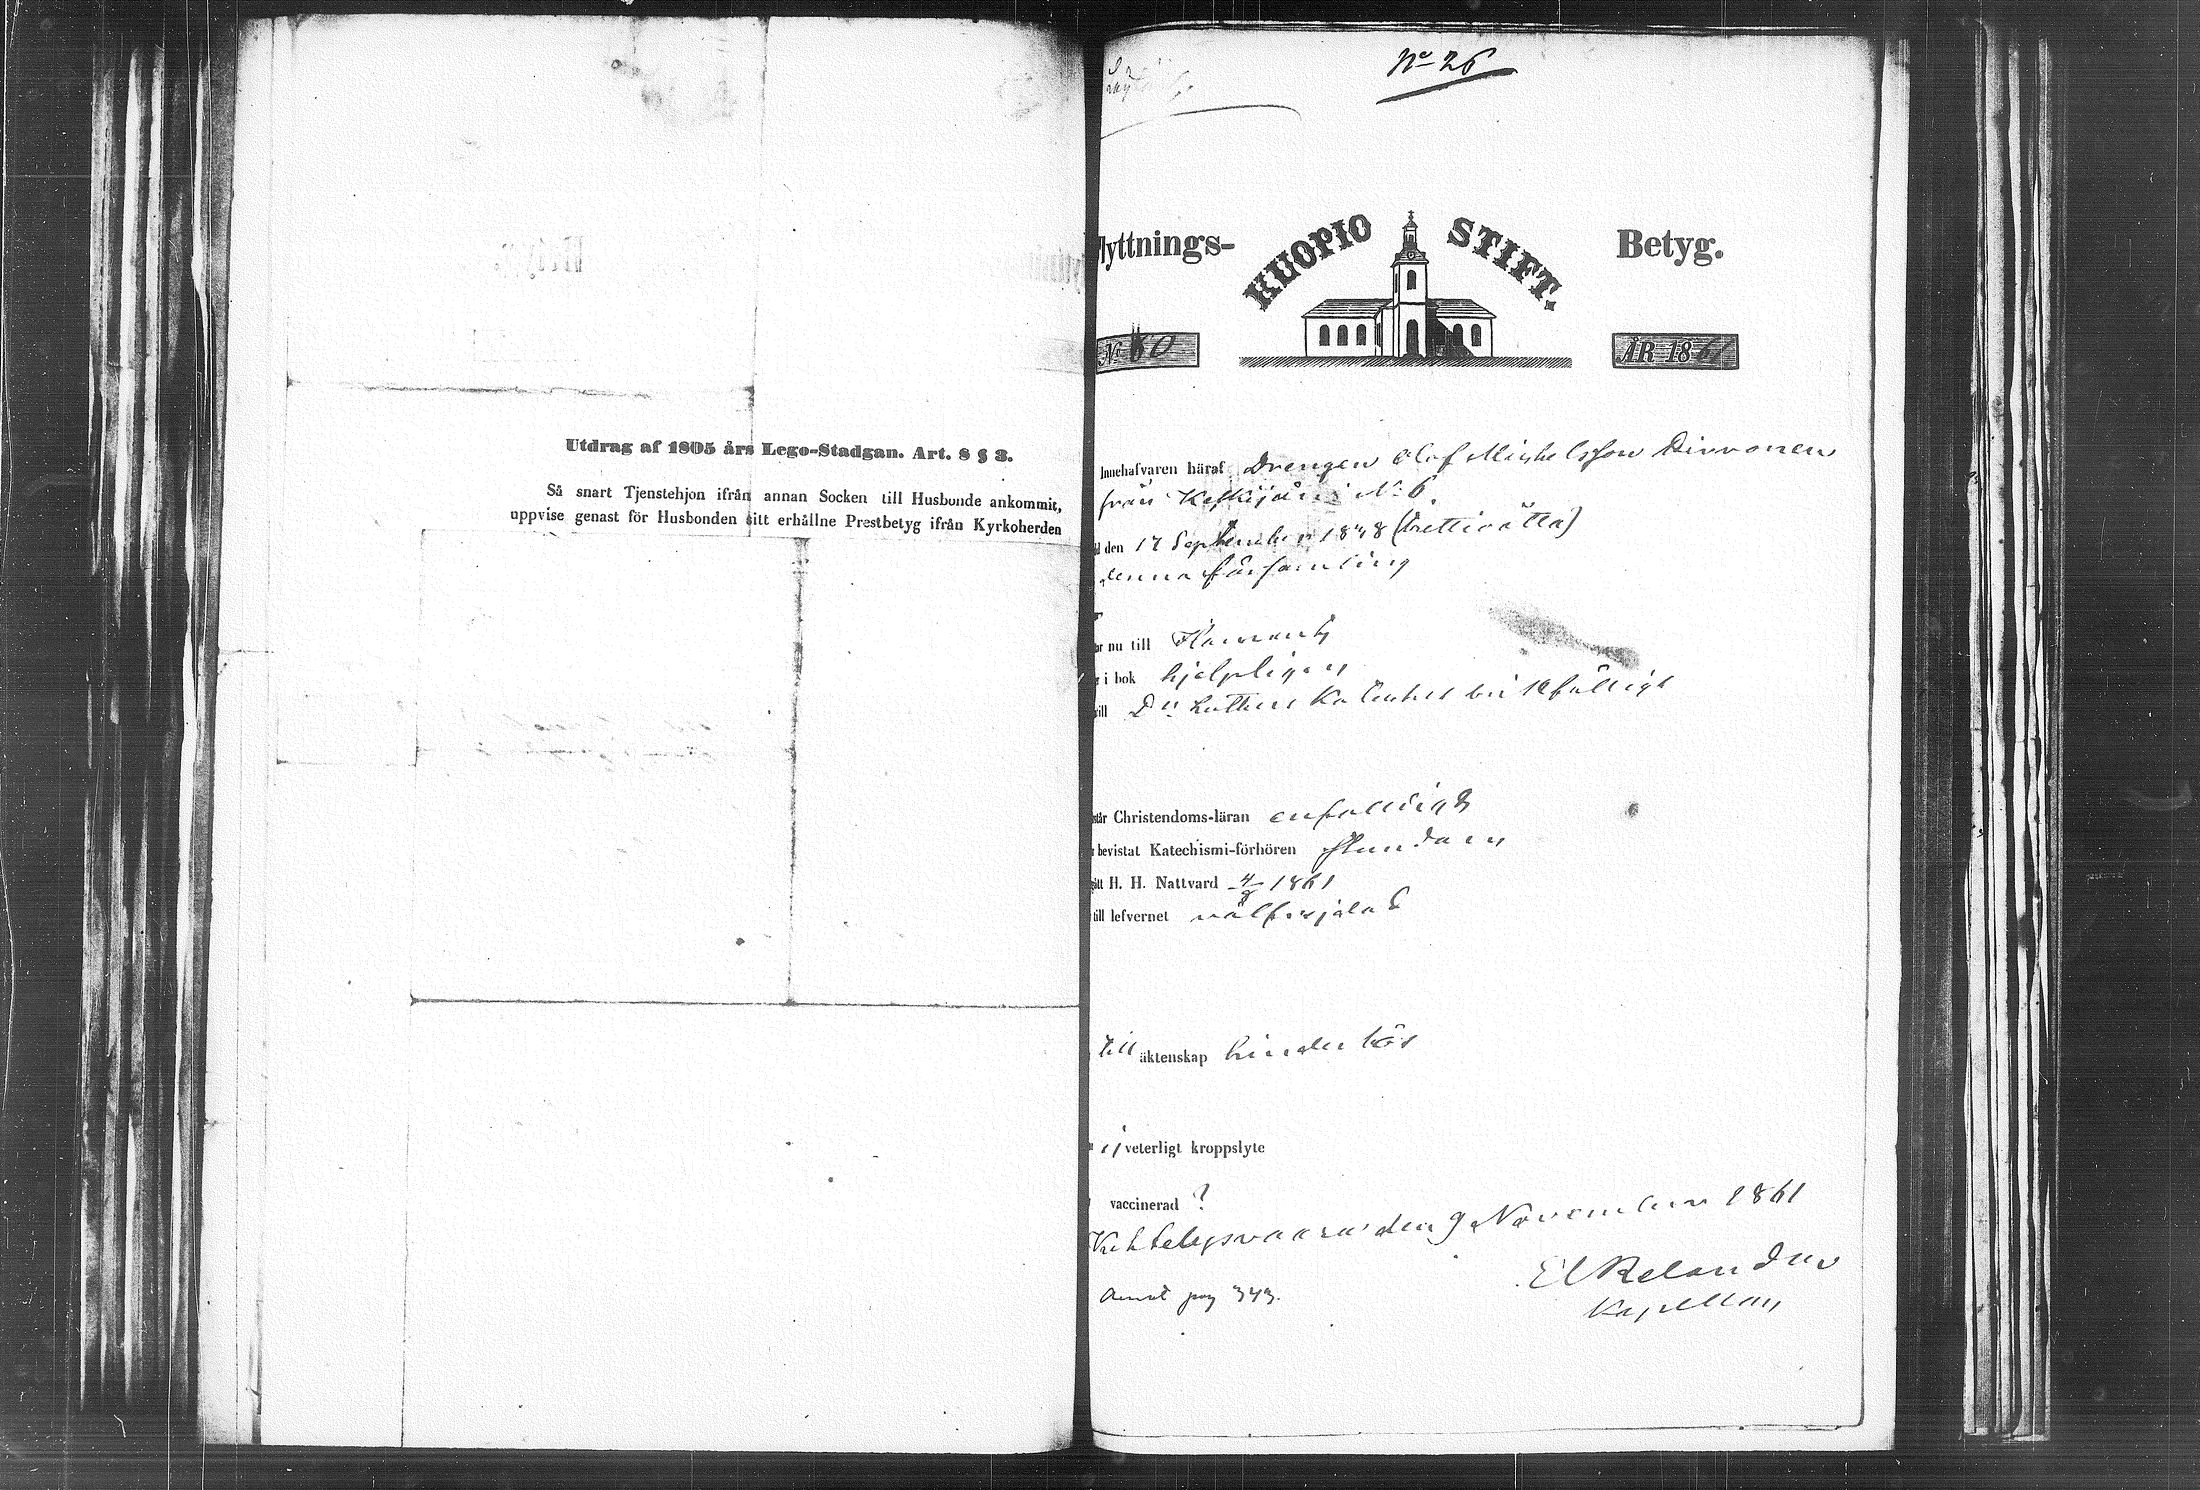 Utdrag af 1805 års Lego-Stadgan. Art. 8 § 3.
Så snart Tjenstehjon ifrån annan Socken till Husbonde ankommit,
uppvise genast för Husbonden sitt erhållne Prestbetyg ifrån Kyrkoherden
No 26
lyttnings-
KUOPIO STIFT.
Betyg.
No 60
ÅR 1861
Innehafvaren häraf Drengen Olof Michelsson
från No 6
den 17 September 1838 (trettioåtta)
denna församling
nu till
i bok hjelpligen
Dr Luthers
Christendoms-läran enfaldigt
bevistat Katechismi-förhören stundom
H. H. Nattvard 4/8 1861
till lefvernet välfrejdad
till äktenskap hinderlös
ej veterligt kroppslyte
vaccinerad ?
Kihtelysvaara den 9 November 1861
Relander
Kapellan
pag 343.